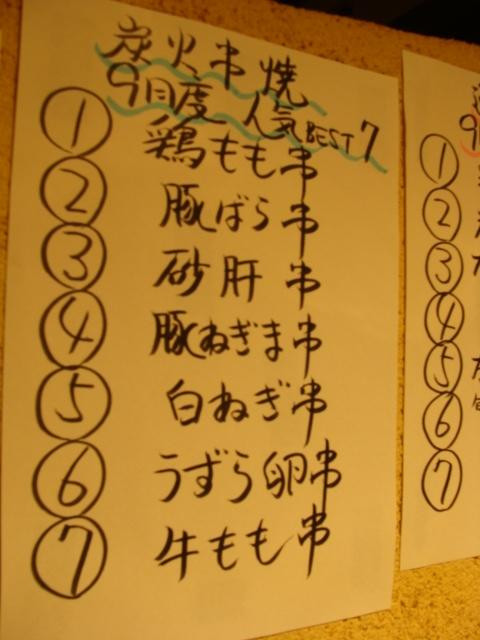 炭火串焼
9月度 人気 BEST 7
① 鶏もも串
② 豚ばら串
③ 砂肝串
④ 豚ねぎま串
⑤ 白ねぎ串
⑥ うずら卵串
⑦ 牛もも串
9
①
②
③
④
⑤
⑥
⑦